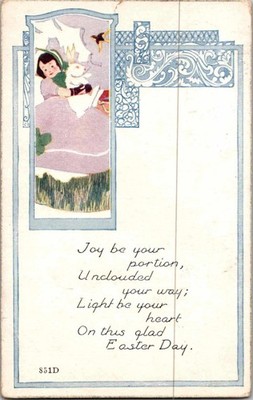 Joy be your
portion,
Unclouded
your way;
Light be your
heart
On this glad
Easter Day.
851D